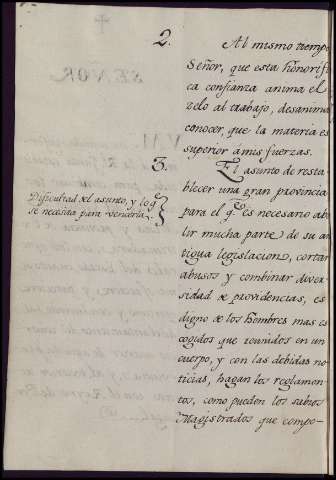 2.
Al mismo tiempo
Señor, que esta honorifi
ca confianza anima el
zelo al trabajo, desanima
conocer, que la materia es
superior a mis fuerzas.
3.
El asunto de resta
blecer una gran provincia
para el q.^e es necesario abo
lir mucha parte de su an
tigua legislacion, cortar
abusos y combinar diver
sidad de providencias, es
digno de los hombres mas es
cogidos que reunidos en un
cuerpo, y con las debidas no
ticias, hagan los reglamen
tos, como pueden los sabios
Magistrados que compo-
Dificultad del asunto, y lo q.^e
se necesita para vencerla.
SEÑOR